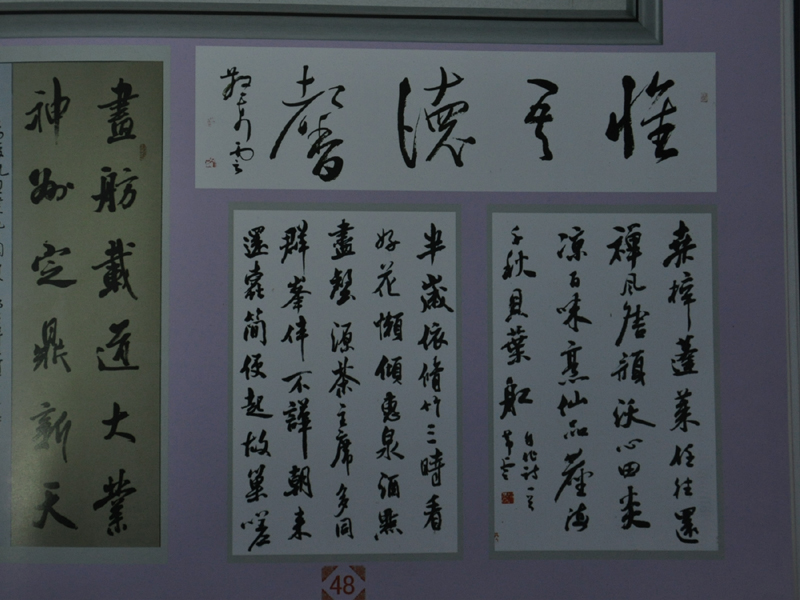 惟吾德馨
桑梓蓬萊任往還
禪風
沃心田炎
涼百味烹仙品塵海
千秋貝葉舩
自作詩一首
半歲依脩竹三時看
好花懶傾惠泉酒點
盡壑源茶主席多同
群峯伴不譁朝來
還蠹簡便起故巢嗟
畫舫載道大業
神州定鼎新天
48